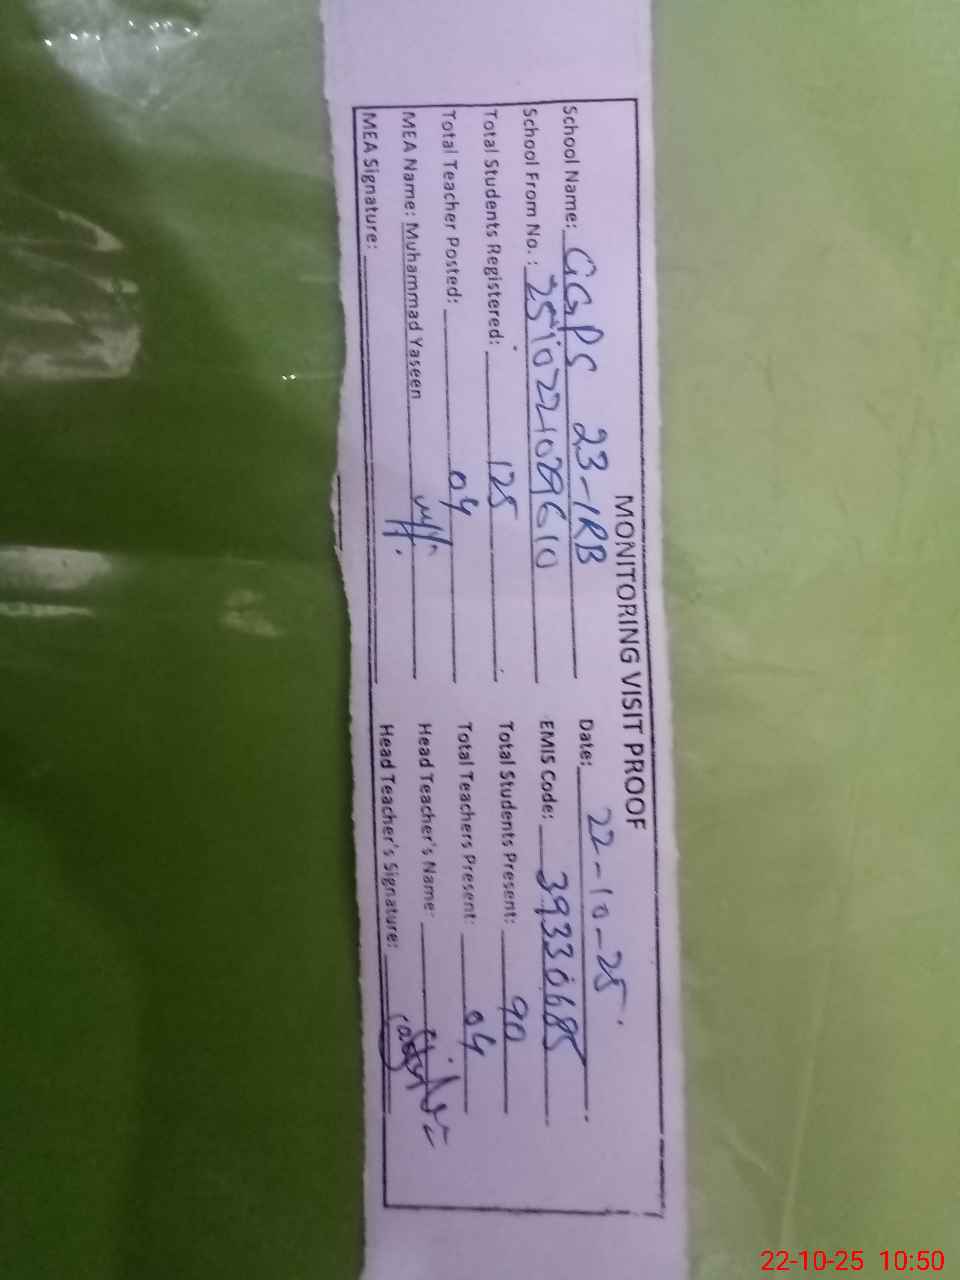 MONITORING VISIT PROOF
School Name: GGPS 23-1RB Date: 22-10-25
School From No. : 2510221029610 EMIS Code: 39330685
Total Students Registered: 125 Total Students Present: 90
Total Teacher Posted: 04 Total Teachers Present: 04
MEA Name: Muhammad Yaseen Head Teacher's Name:
MEA Signature: Head Teacher's Signature:
22-10-25 10:50